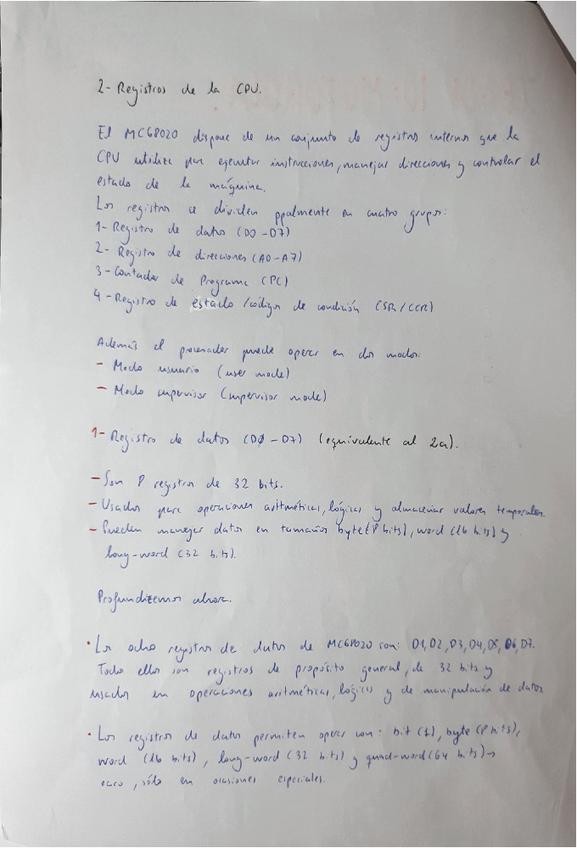 2- Registros de la CPU.
El MC68020 dispone de un conjunto de registros internos que la
CPU utiliza para ejecutar instrucciones, manejar direcciones y controlar el
estado de la máquina.
Los registros se dividen ppalmente en cuatro grupos:
1- Registro de datos (D0-D7)
2- Registro de direcciones (A0-A7)
3- Contador de Programa (PC)
4- Registro de estado/códigos de condición (SR/CCR)
Además el procesador puede operar en dos modos:
- Modo usuario (user mode)
- Modo supervisor (supervisor mode)
1- Registro de datos (D0-D7) (equivalente al 2a).
- Son 8 registros de 32 bits.
- Usados para operaciones aritméticas, lógicas y almacenar valores temporales.
- Pueden manegar datos en tamaños byte (8 bits), word (16 bits) y
long-word (32 bits).
Profundizemos ahora.
• Los ocho registros de datos de MC68020 son: D1, D2, D3, D4, D5, D6, D7.
Todo ellos son registros de propósito general, de 32 bits y
usados en operaciones aritméticas, lógicas y de manipulación de datos
• Los registros de datos permiten operar con: bit (1), byte (8 bits),
word (16 bits), long-word (32 bits) y quad-word (64 bits)→
raro, sólo en ocasiones especiales.